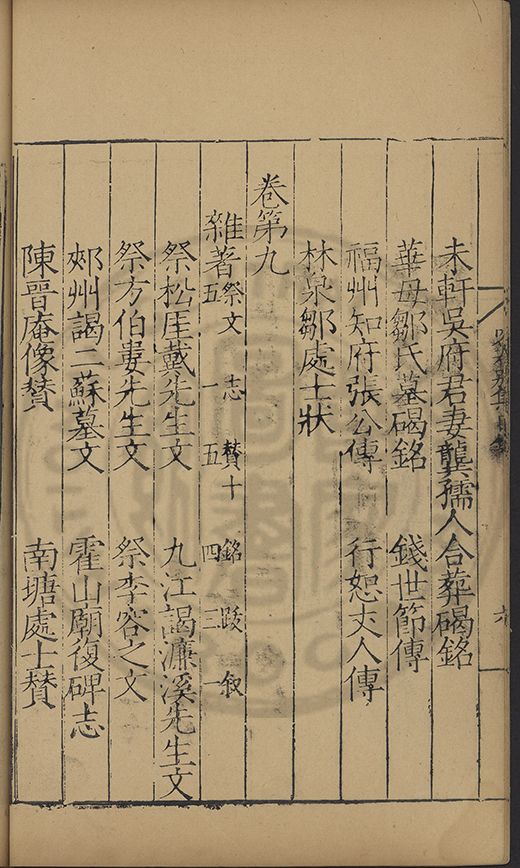 未軒吳府君妻龔孺人合葬碣銘
華母鄒氏墓碣銘　錢世節傳
福州知府張公傳　行恕丈人傳
林泉鄒處士狀
卷第九
雜著　祭文五　志一　賛十五　銘四　跋三　叙一
祭松厓戴先生文　九江謁濂溪先生文
祭方伯婁先生文　祭李容之文
郟州謁二蘇墓文　霍山廟復碑志
陳晉庵像賛　南塘處士賛